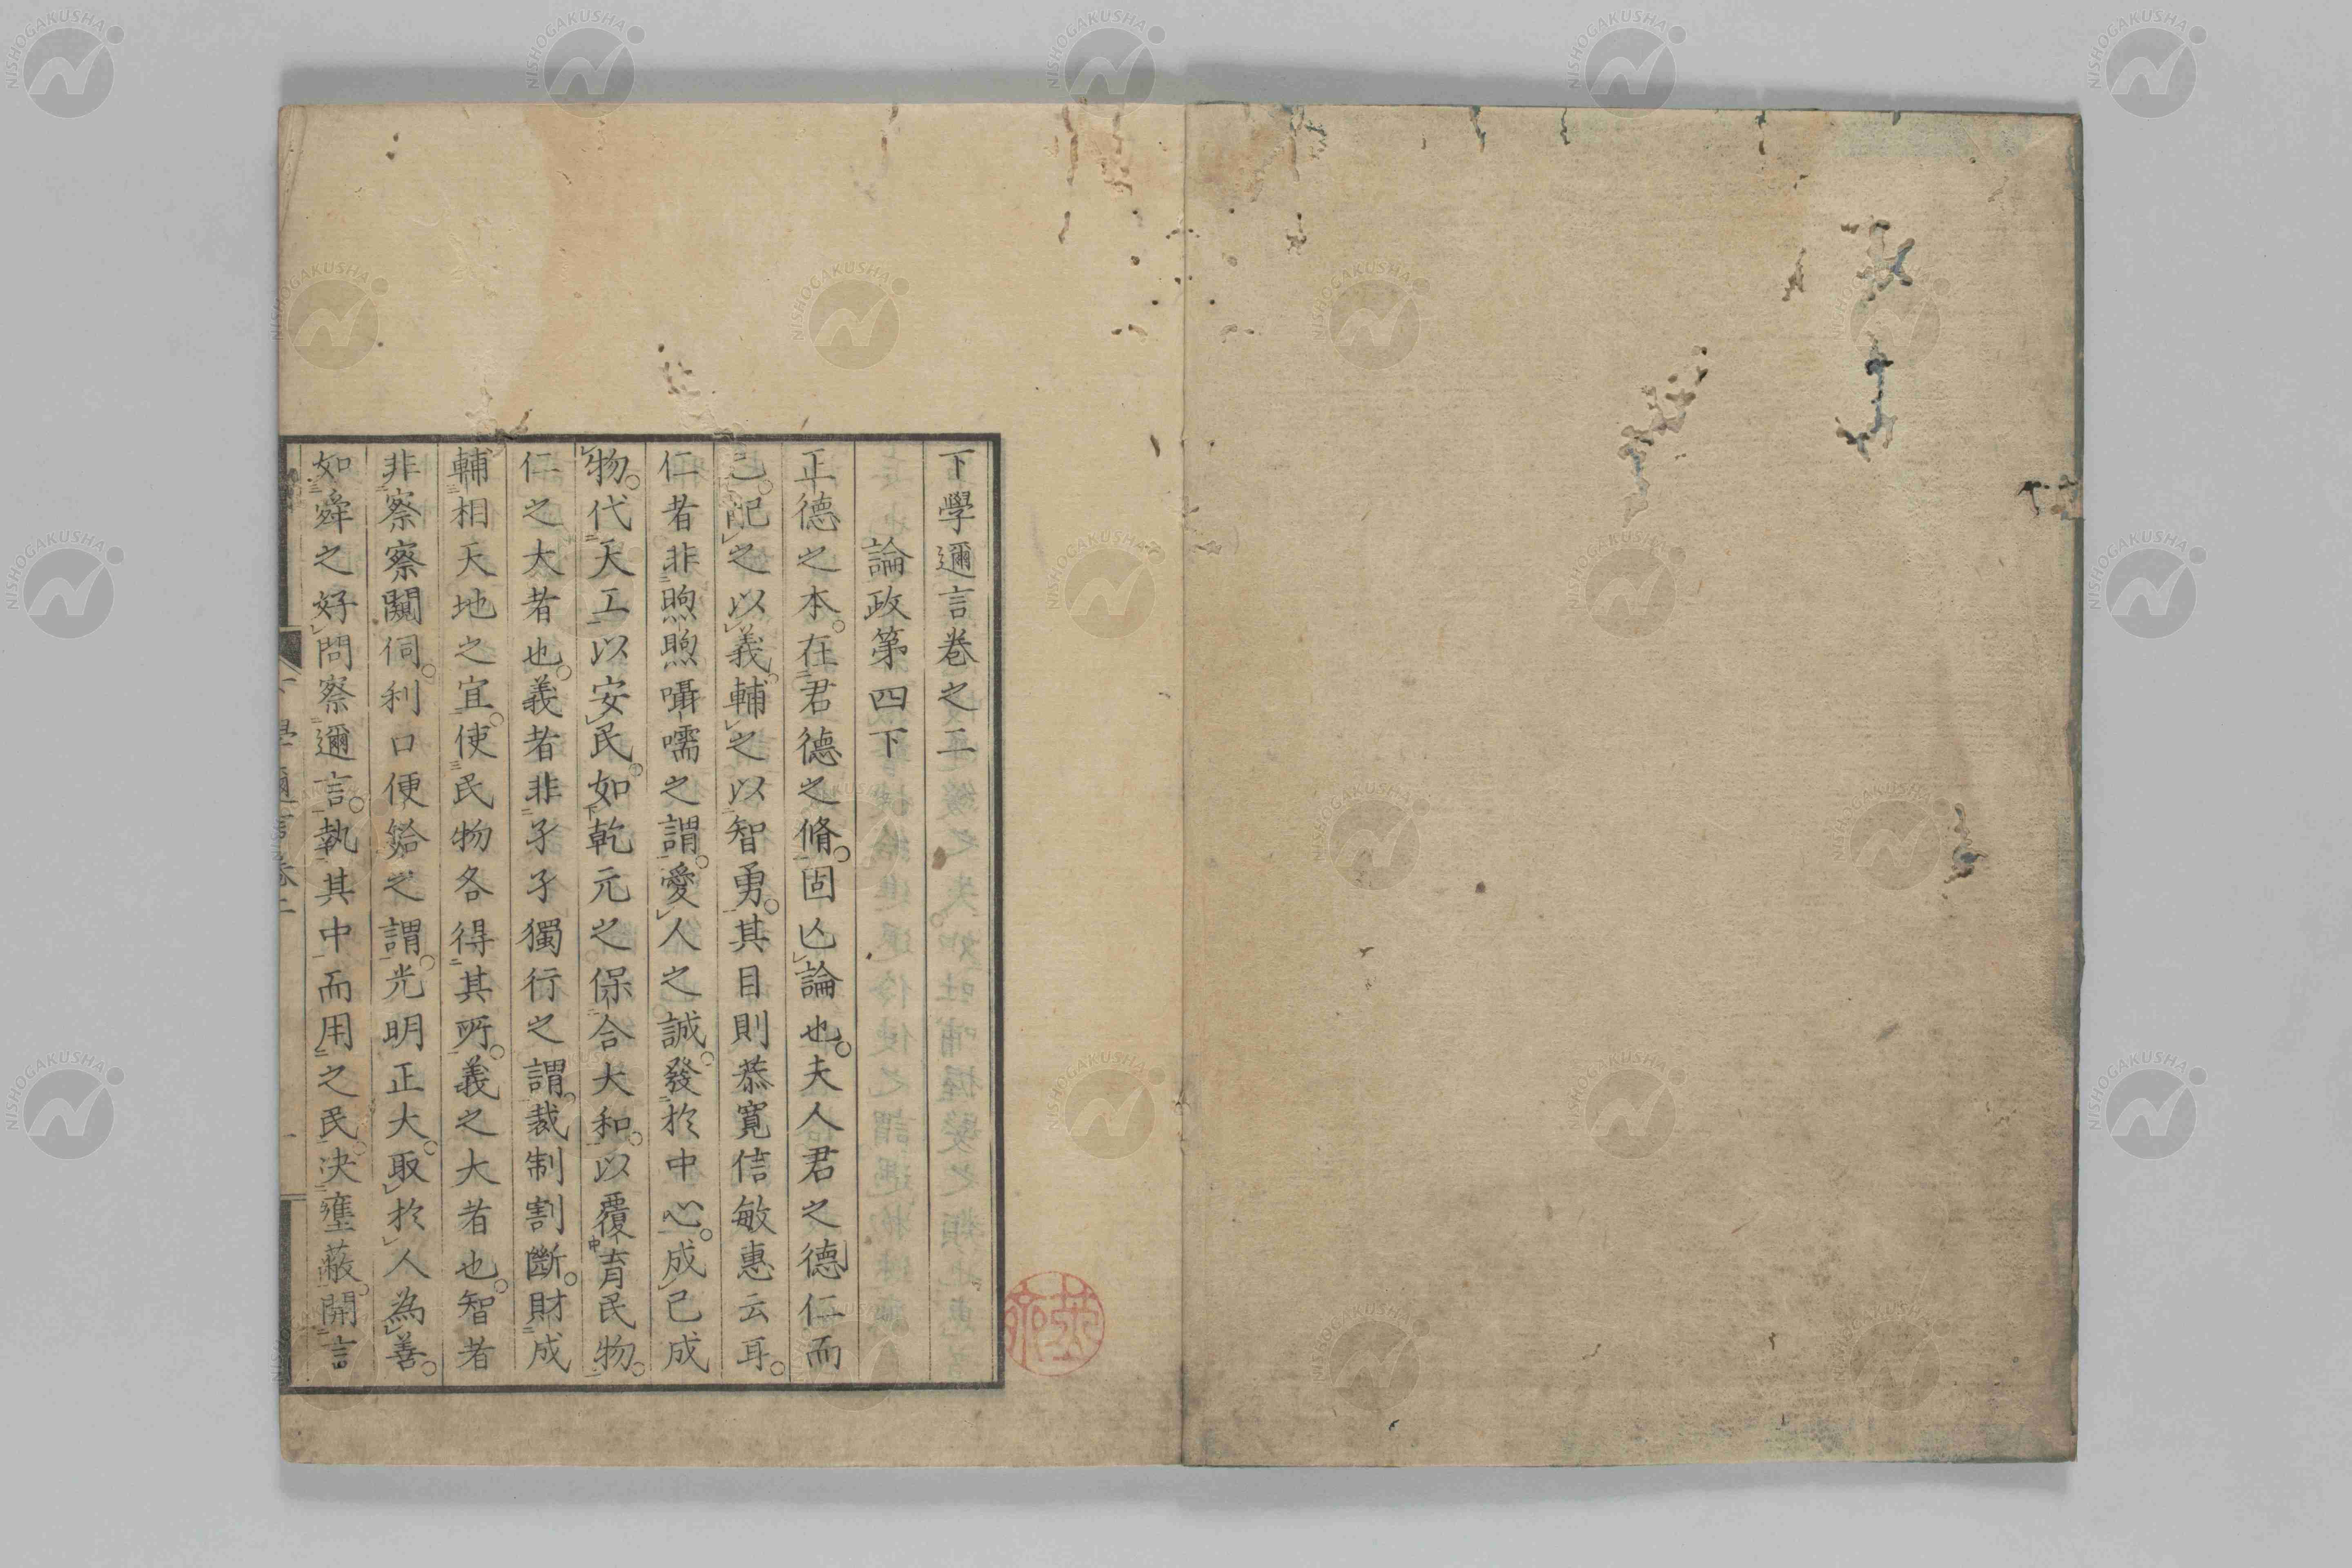 下學邇言卷之三
論政第四下
正德之本。在君德之脩。固亾論也。夫人君之德仁而
已。配之以義。輔之以智勇。其目則恭寬信敏惠云耳。
仁者非煦煦囁嚅之謂。愛人之誠。發於中心。成己成
物。代天工以安民。如乾元之保合大和。以覆育民物。
仁之大者也。義者非孑孑獨行之謂。裁制割斷。財成
輔相天地之宜。使民物各得其所。義之大者也。智者
非察察闚伺。利口便給之謂。光明正大。取於人為善。
如舜之好問察邇言。執其中而用之民。決壅蔽。開言
NISHOGAKUSHA